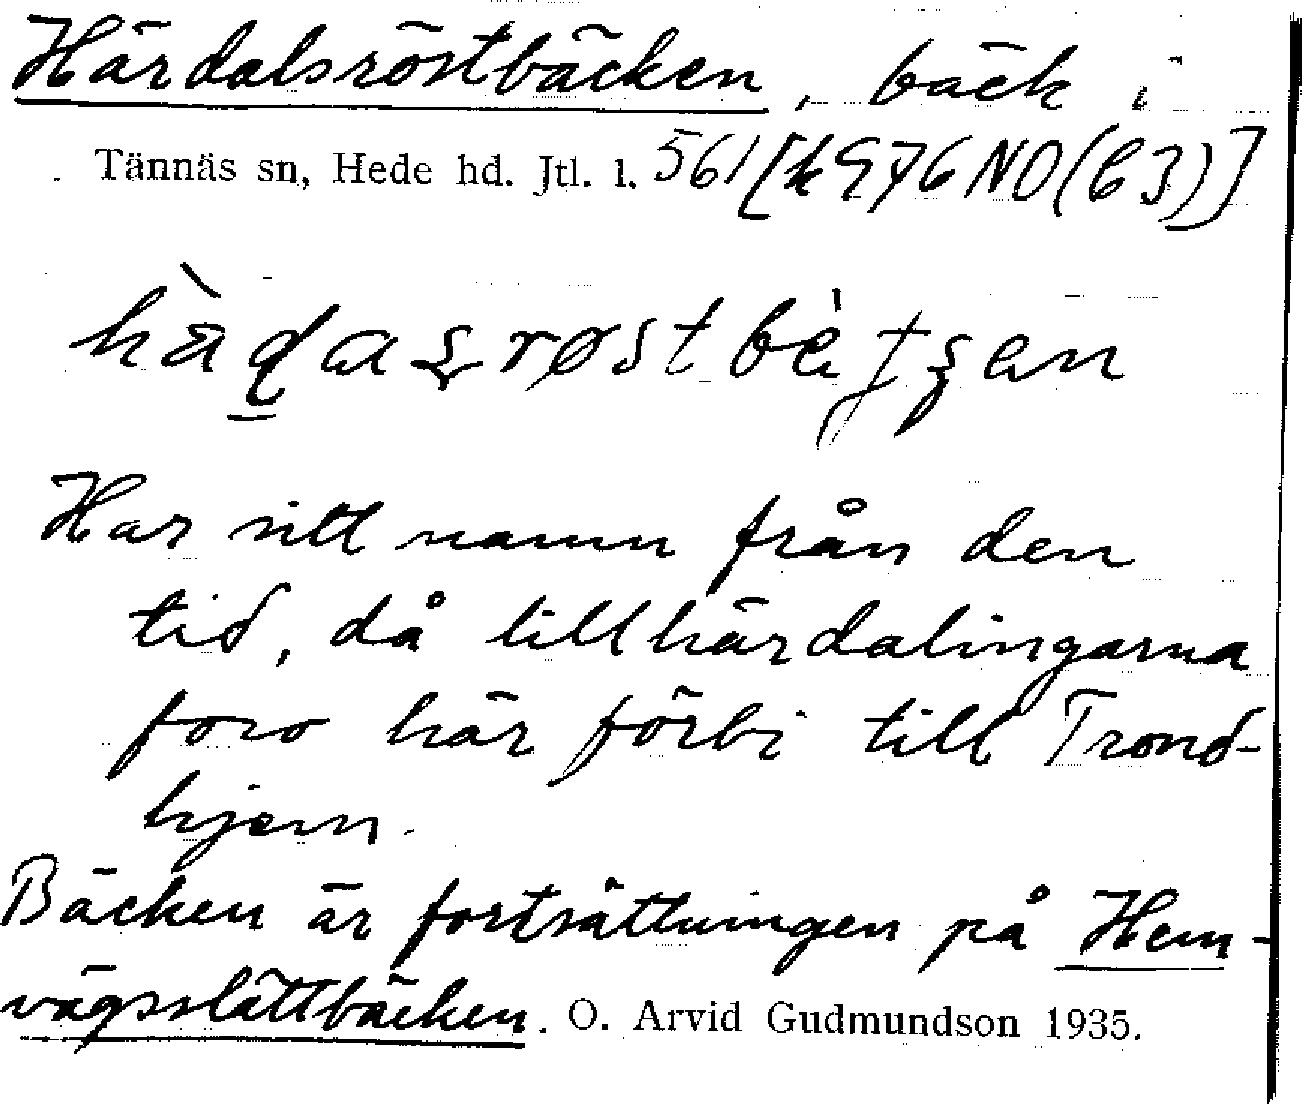 Härdalsröstbäcken, bäck i
Tännäs sn, Hede hd. Jtl. l. 561 [k 976 NO (63)]
Har sitt namn från den
tid, då tillhärdalingarna
foro här förbi till Trond-
hjem.
Bäcken är fortsättningen på Hem-
vägsslåttbäcken. O. Arvid Gudmundson 1935.